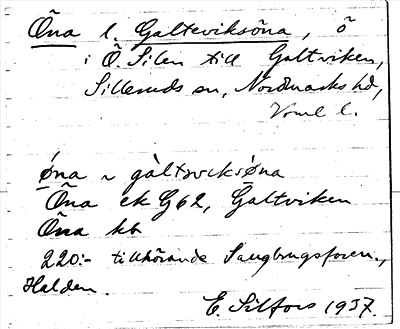 Õna l. Galteviksõna, ö
i Õ. Silen till Galtviken,
Silleruds sn, Nordmarks hd,
Vrml l.
øna ~ gàltsviksøna
Õna ek G62, Galtviken
Õna kb
220:- tillhörande Saugbrugsforen.,
Halden.
E. Silfors 1937.